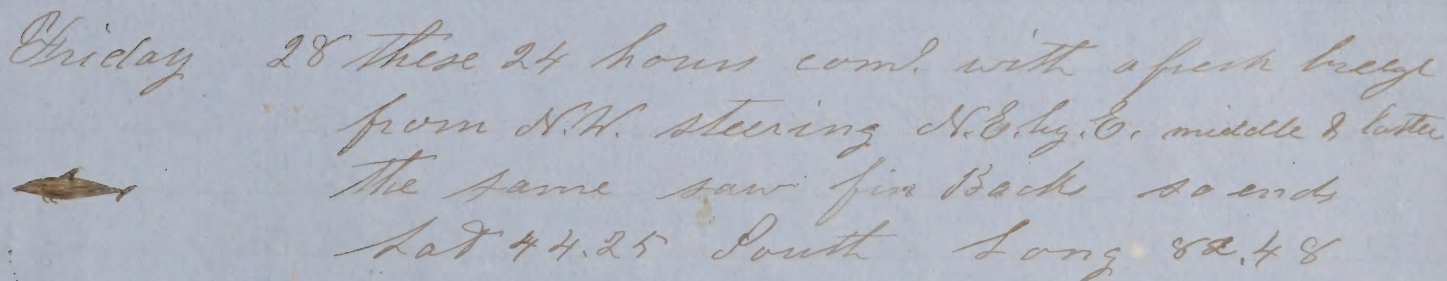 Friday 28 these 24 hours com^d. with a fresh breeze
from N.W. steering N.E.by.E. middle & latter
the same saw fin Backs so ends
Lat 44.25 South Long 82.48